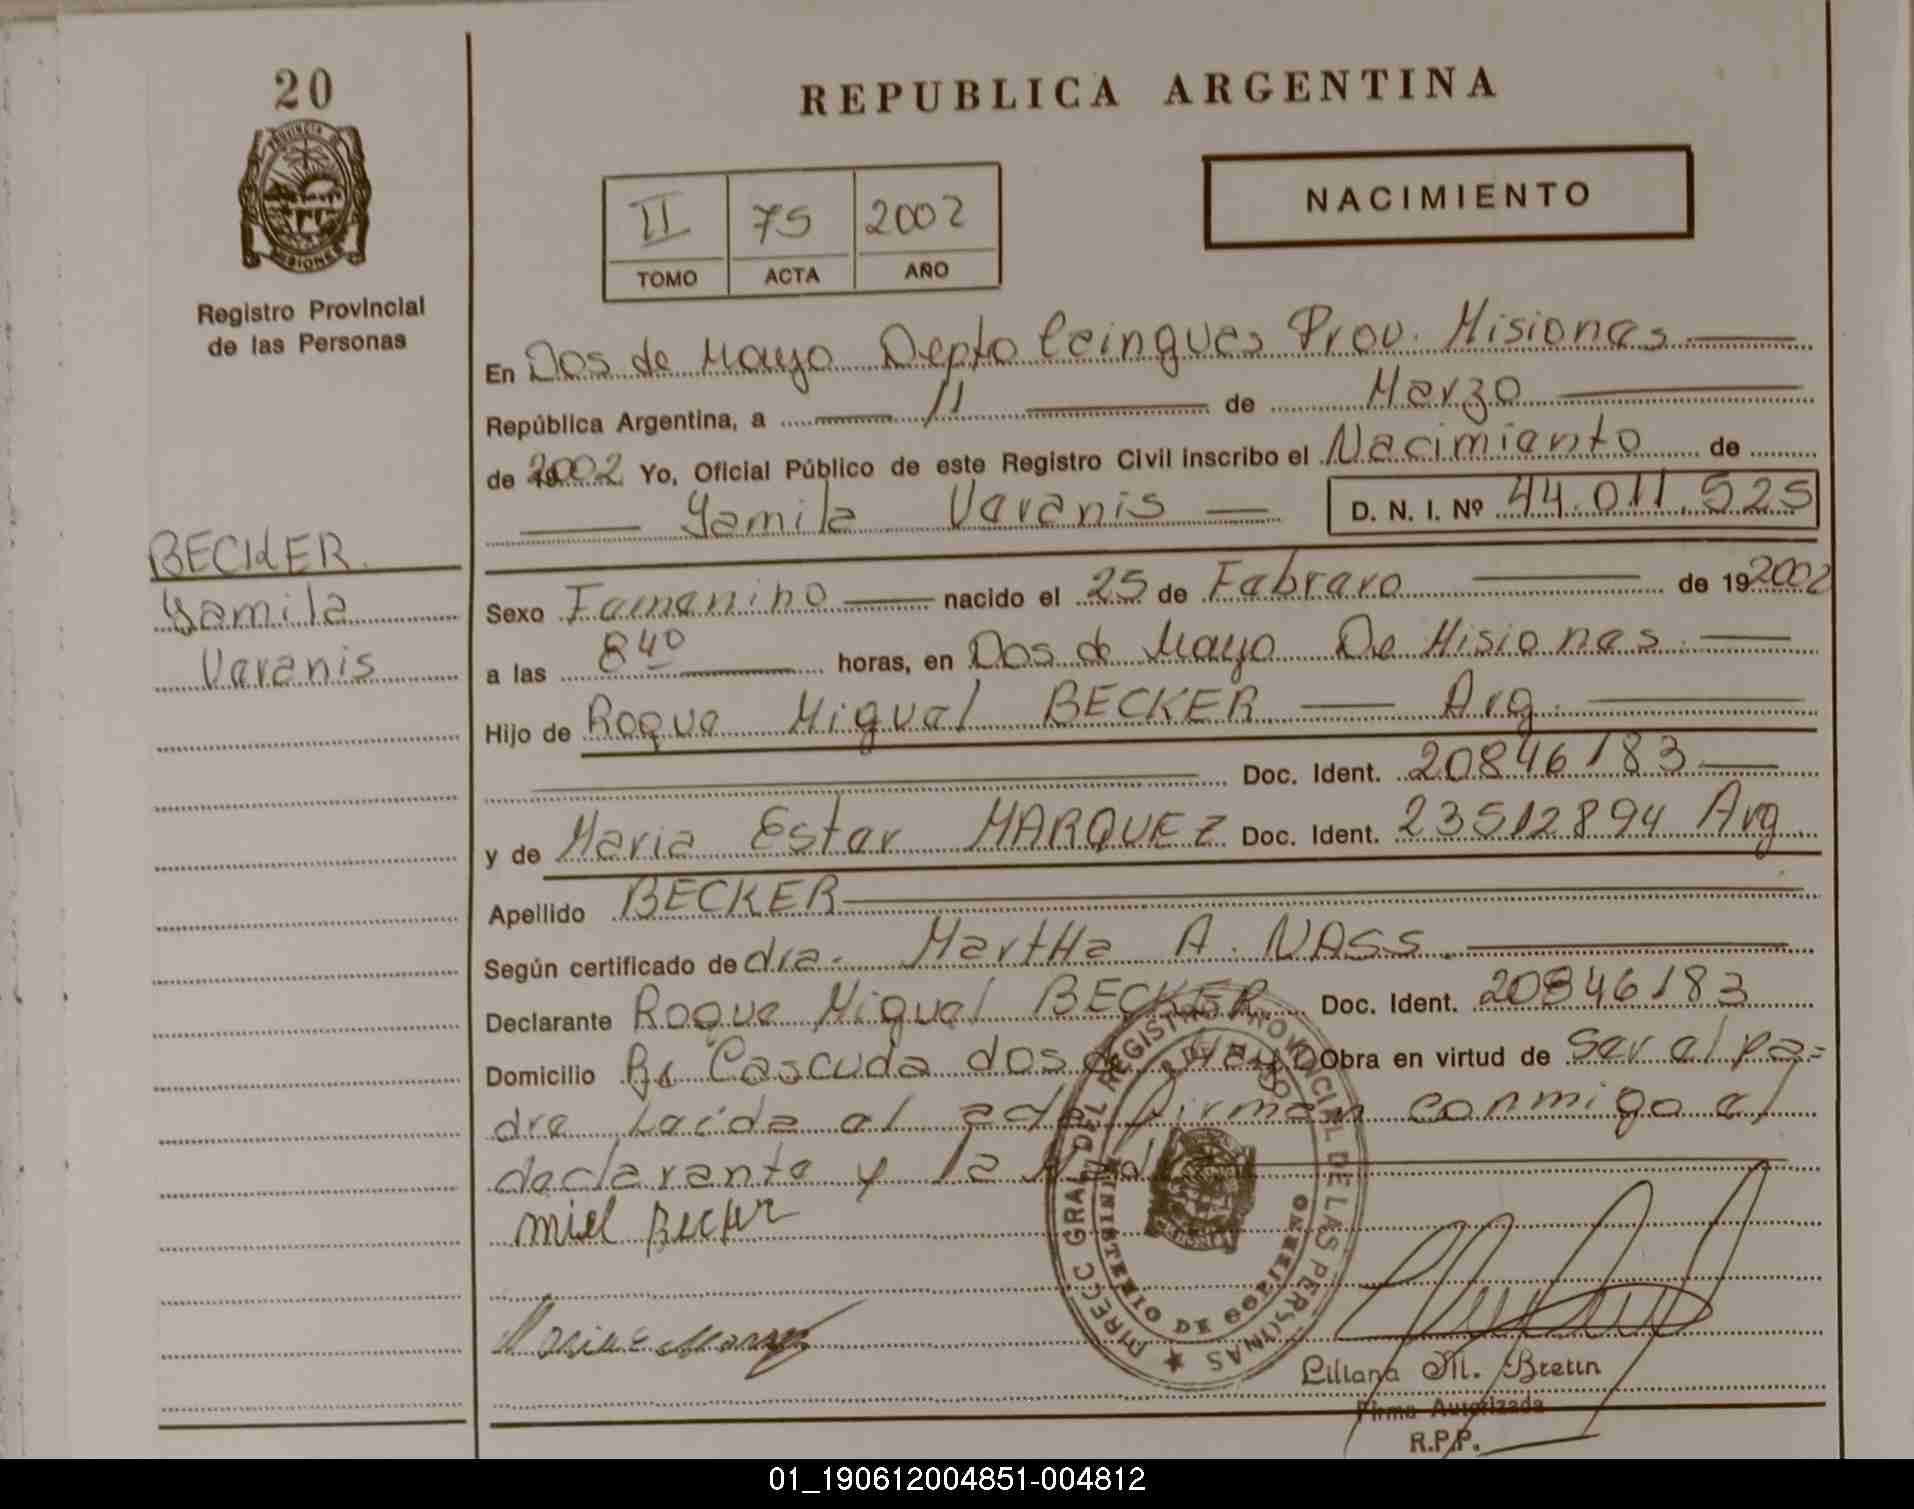 20
PROVINCIA DE
MISIONES
Registro Provincial
de las Personas
BECKER
Yamila
Vavanis
REPUBLICA ARGENTINA
NACIMIENTO
II 75 2002
TOMO ACTA AÑO
En Dos de Mayo Depto Caingues Prov. Misiones
República Argentina, a 11 de Marzo
de 2002 Yo, Oficial Público de este Registro Civil inscribo el Nacimiento de
Yamila Vavanis D. N. I. Nº 44.011.525
Sexo Femenino nacido el 25 de Febrero de 19 2002
a las 8 40 horas, en Dos de Mayo De Misiones
Hijo de Roque Miguel BECKER Arg.
Doc. Ident. 20846183
y de Maria Ester MARQUEZ Doc. Ident. 23512894 Arg
Apellido BECKER
Según certificado de dra. Martha A. NASS
Declarante Roque Miguel BECKER Doc. Ident. 20846183
Domicilio Bº Cascuda dos de Mayo Obra en virtud de Ser el pa=
dre Leida el acta firman conmigo el
declarante y la
Becker
DIRECC GRAL DEL REGISTRO PROVINCIAL DE LAS PERSONAS
MINISTERIO DE GOBIERNO
Liliana M. Bretin
Firma Autorizada
R.P.P.
01_190612004851-004812